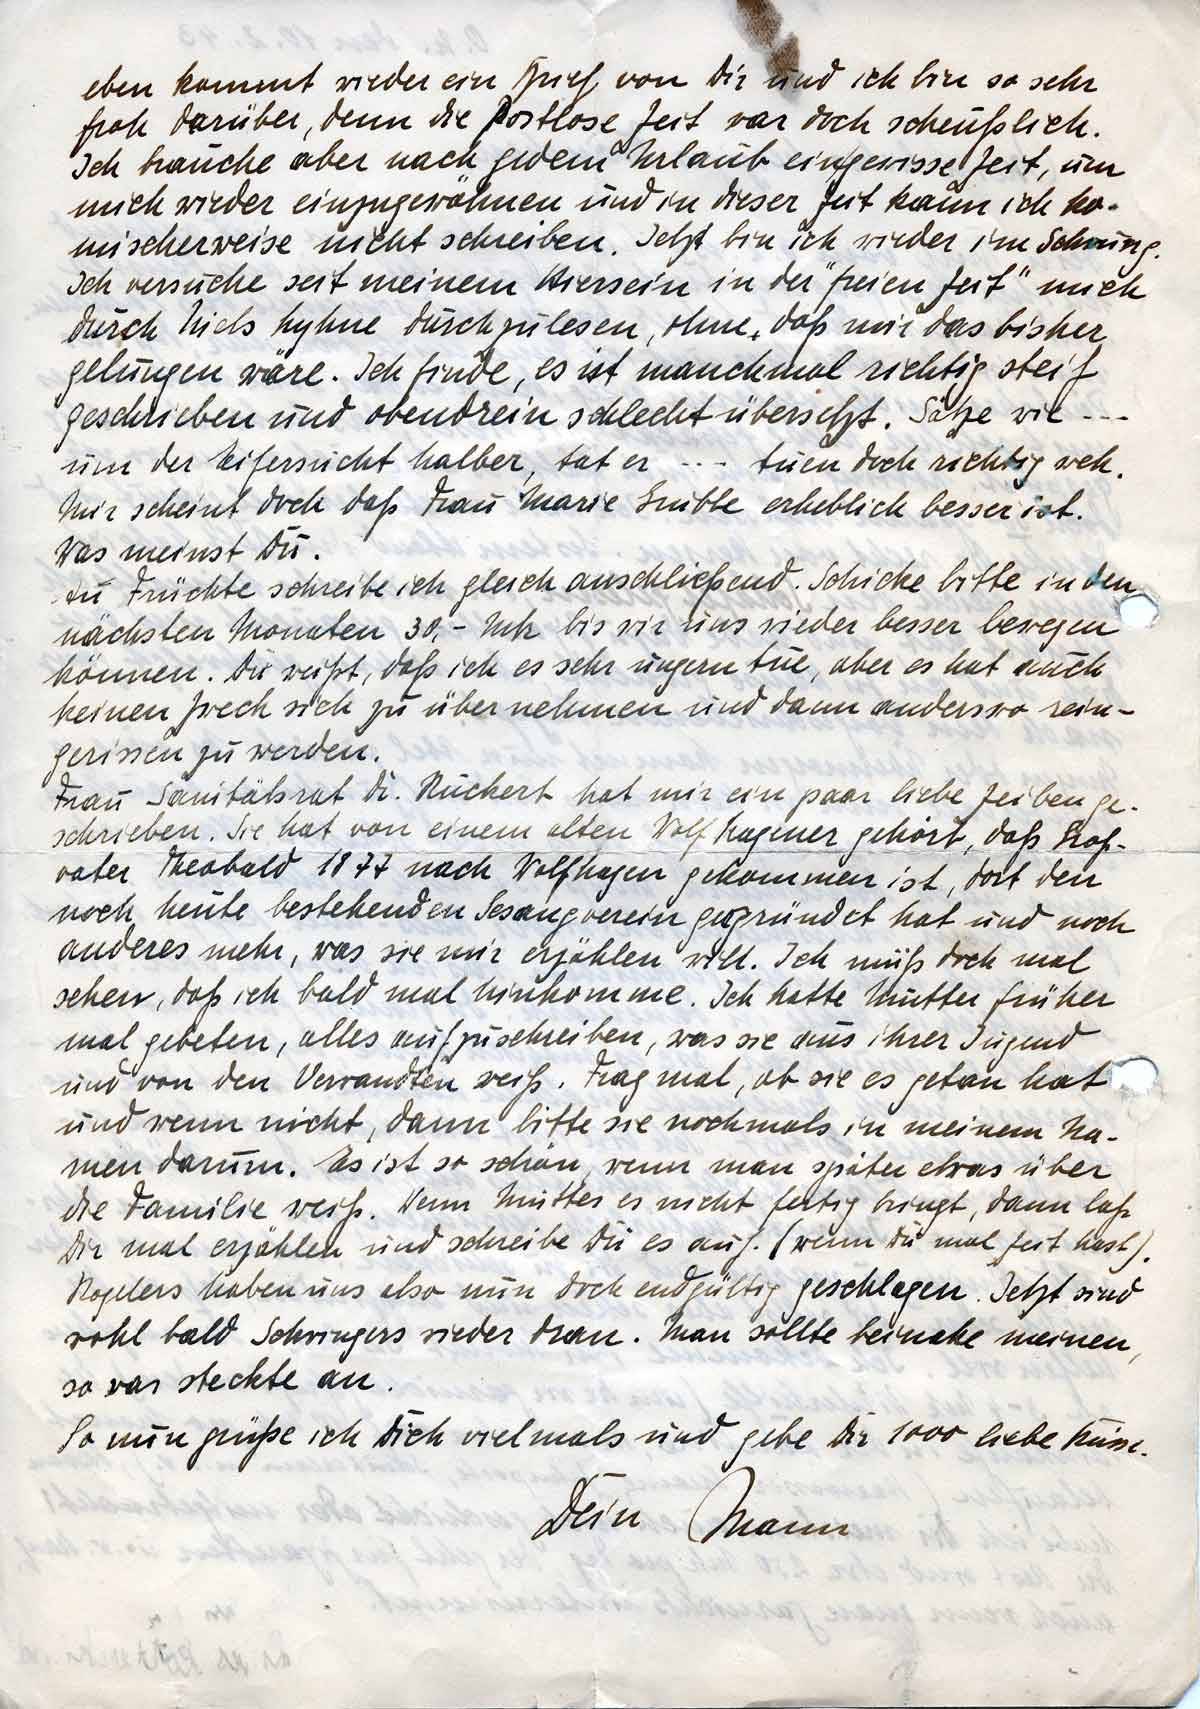 eben kommt wieder ein Brief von Dir und ich bin so sehr
froh darüber, denn die Postlose Zeit war doch scheußlich.
Ich brauche aber nach jedem Urlaub eine gewisse Zeit, um
mich wieder einzugewöhnen und in dieser Zeit kann ich ko-
mischerweise nicht schreiben. Jetzt bin ich wieder im Schwung.
Ich versuche seit meinem Hiersein in der "freien Zeit" mich
durch Niels Lyhne durchzulesen, ohne, daß mir das bisher
gelungen wäre. Ich finde, es ist manchmal richtig steif
geschrieben und obendrein schlecht übersetzt. Sätze wie ---
um der Eifersucht halber, tat er --- tuen doch richtig weh.
Mir scheint doch daß Frau Marie Grubbe erheblich besser ist.
Was meinst Du.
An Früchte schreibe ich gleich anschließend. Schicke bitte in den
nächsten Monaten 30,- Mk bis wir uns wieder besser bewegen
können. Du weißt, daß ich es sehr ungern tue, aber es hat auch
keinen Zweck sich zu übernehmen und dann anderswo rein-
gerissen zu werden.
Frau Sanitätsrat Dr. Rückert hat mir ein paar liebe Zeilen ge-
schrieben. Sie hat von einem alten Wolfhagener gehört, daß Groß-
vater Theobald 1877 nach Wolfhagen gekommen ist, dort den
noch heute bestehenden Gesangverein gegründet hat und noch
anderes mehr, was sie mir erzählen will. Ich muß doch mal
sehen, daß ich bald mal hinkomme. Ich hatte Mutter früher
mal gebeten, alles aufzuschreiben, was sie aus ihrer Jugend
und von den Verwandten weiß. Frag mal, ob sie es getan hat
und wenn nicht, dann bitte sie nochmals in meinem Na-
men darum. Es ist so schön, wenn man später etwas über
die Familie weiß. Wenn Mutter es nicht fertig bringt, dann laß
Dir mal erzählen und schreibe Du es auf. (wenn Du mal Zeit hast).
haben uns also nun doch endgültig geschlagen. Jetzt sind
wohl bald Schwingers wieder dran. Man sollte beinahe meinen,
so was steckte an.
So nun grüße ich Dich vielmals und gebe Dir 1000 liebe Küsse.
Dein Mann